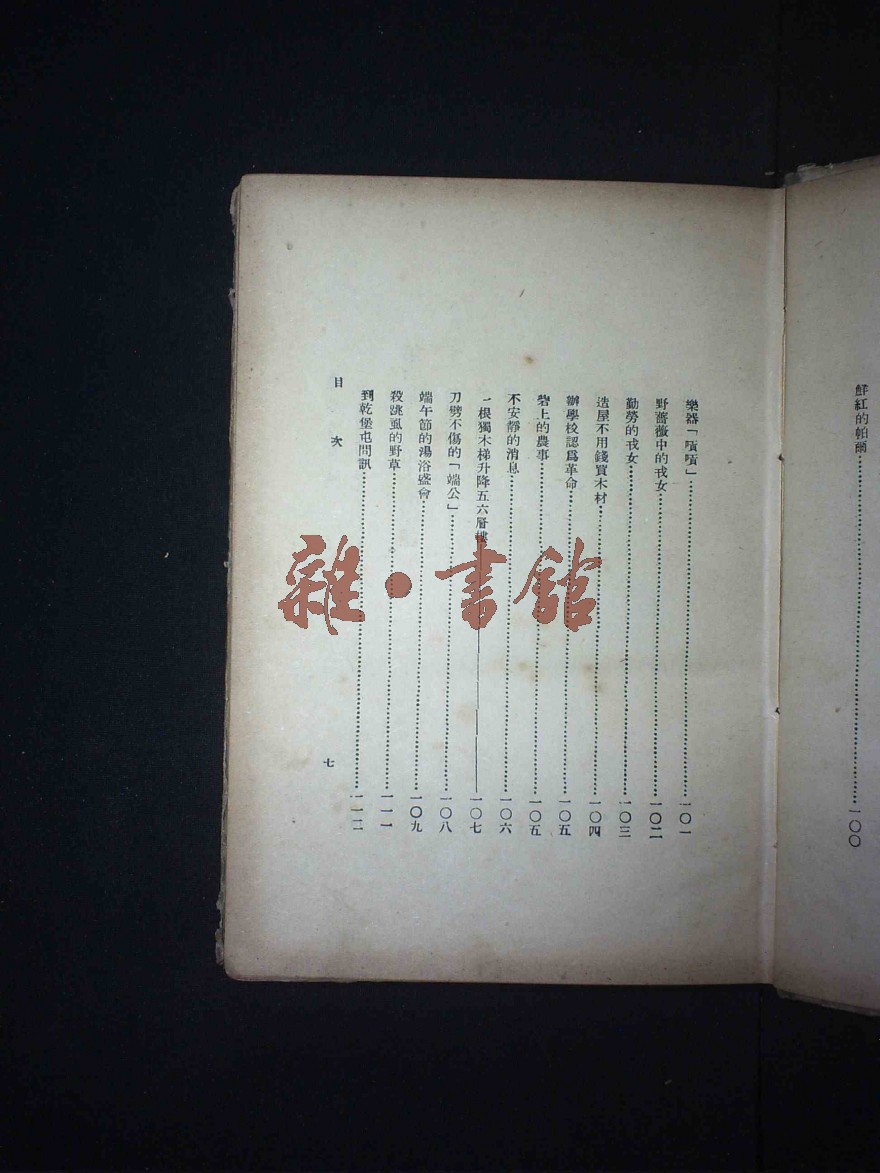 鮮紅的帕爾……一〇〇
樂器「嘖嘖」……一〇一
野薔薇中的戎女……一〇二
勤勞的戎女……一〇三
造屋不用錢買木材……一〇四
辦學校認爲革命……一〇五
砦上的農事……一〇五
不安靜的消息……一〇六
一根獨木梯升降五六層樓……一〇七
刀劈不傷的「端公」……一〇八
端午節的湯浴盛會……一〇九
殺跳虱的野草……一一一
到乾堡屯問訊……一一二
目次
七
雜·書館